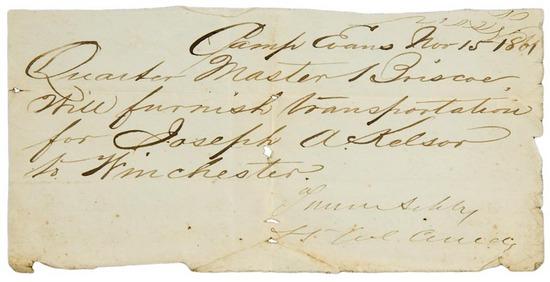 Camp Evans Nov 15 1861
Quarter Master Briscoe
Will furnish transportation
for Joseph A. Kelsor
to Winchester.
Turner Ashby
Lt Col